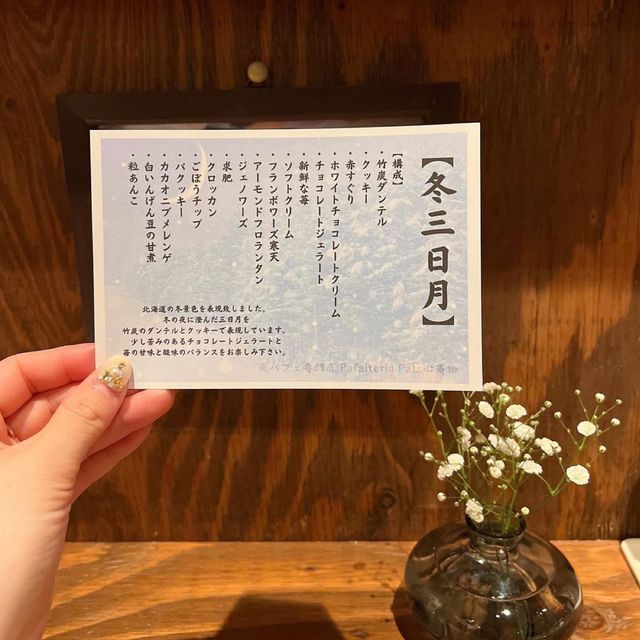 【冬三日月】
【構成】
・竹炭ダンテル
・クッキー
・赤すぐり
・ホワイトチョコレートクリーム
・チョコレートジェラート
・新鮮な苺
・ソフトクリーム
・フランボワーズ寒天
・アーモンドフロランタン
・ジェノワーズ
・求肥
・クロッカン
・ごぼうチップ
・パクッキー
・カカオニブメレンゲ
・白いんげん豆の甘煮
・粒あんこ
北海道の冬景色を表現致しました。
冬の夜に澄んだ三日月を
竹炭のダンテルとクッキーで表現しています。
少し苦みのあるチョコレートジェラートと
苺の甘味と酸味のバランスをお楽しみ下さい。
夜パフェ専門店 Parfaiteria PaL